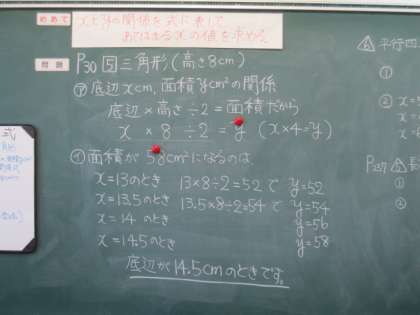 めあて xとyの関係を式に表して、
あてはまるxの値を求めよう
問題 P30 5 三角形(高さ8cm)
ア 底辺xcm, 面積ycm²の関係
底辺×高さ÷2=面積だから
x × 8 ÷2= y (x×4=y)
イ 面積が58cm²になるのは
x=13のとき 13×8÷2=52で y=52
x=13.5のとき 13.5×8÷2=54で y=54
x=14 のとき y=56
x=14.5のとき y=58
底辺が14.5cmのときです。
式
4 平行四
①
② x=
P27
①
②